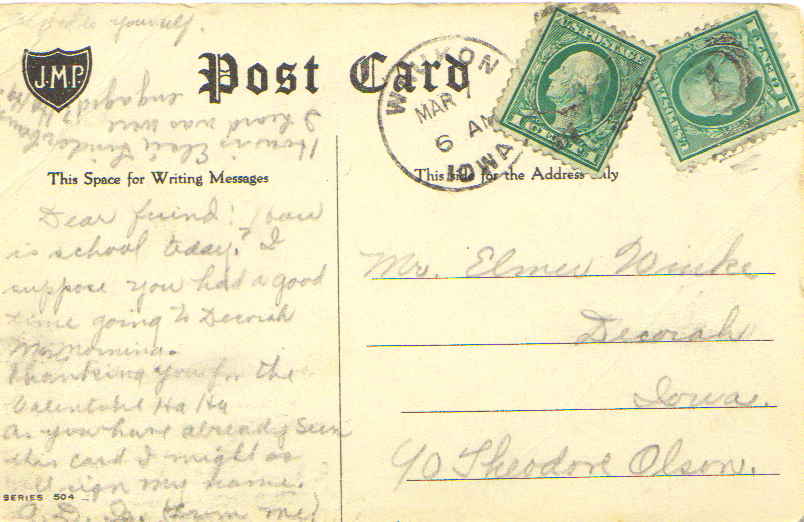 to yourself.
J.M.P.
Post Card
WAUKON
MAR 1
6 AM
IOWA
U.S. POSTAGE
1 CENT 1
How is Elsie
I heard was were
engaged?
This Space for Writing Messages
This side for the Address only
Dear friend! how
is school today? I
suppose you had a good
time going to Decorah
Mr. Elmer Winke
Decorah
Iowa.
C/O Theodore Olson.
Thanking you for the
Valentine Ha Ha
As you have already seen
this card I might as
well sign my name.
SERIES 504
(from me)